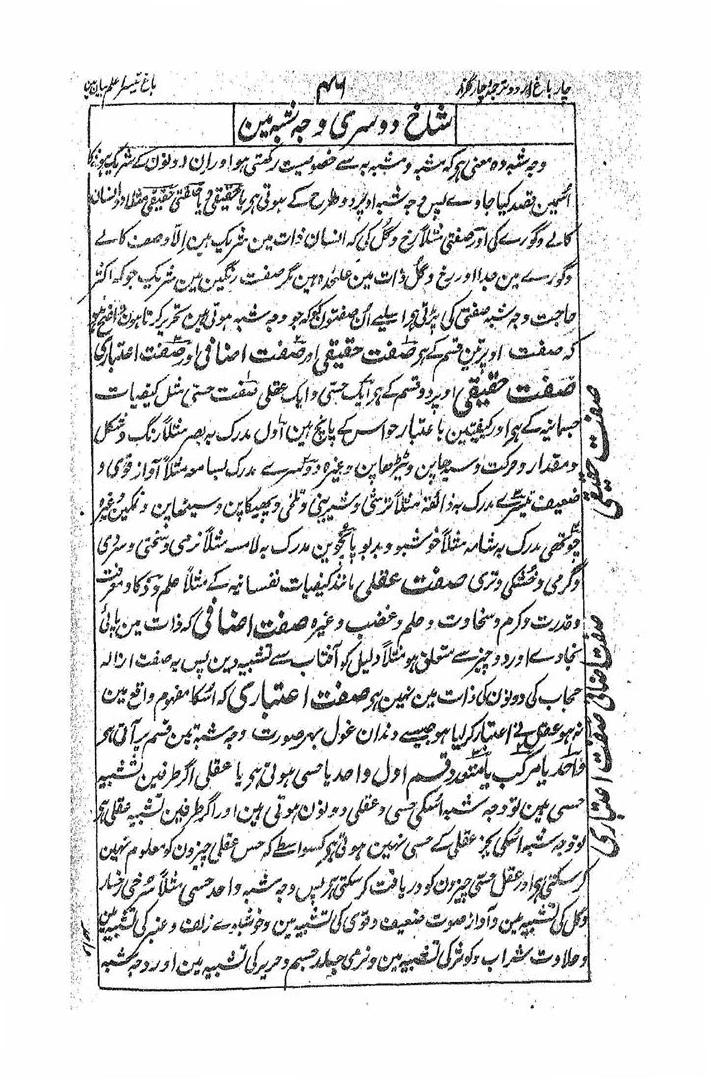 چار باغ اردو ترجمہ چار گلزار
باغ تیسرا علم بیان مین
شاخ دوسری وجہ شبہ مین
وجہ شبہ وہ معنی ہی کہ مشبہ و مشبہ بہ سے خصوصیت رکھتی ہو اور ان دونون کے شریک ہونیکا
اسمین قصد کیا جاوے پس وجہ شبہ اوپر دو طرح کے ہوتی ہی یا حقیقی و یا صفتی حقیقی مثلاً دو انسان
کالے و گورے کی اور صفتی مثلاً رخ و گل کی کہ انسان ذات مین شریک ہین الّا وصف کالے
و گورے مین جدا اور رخ و گل ذات مین علٰحدہ ہین مگر صفت رنگین مین شریک چونکہ اکثر
حاجت وجہ شبہ صفتی کی پڑتی ہی اسلیے ان صفتون کو کہ جو وجہ شبہ ہوتی ہین تحریر کرتا ہون واضح ہو
کہ صفت اوپر تین قسم کے ہی صفت حقیقی اور صفت اضافی اور صفت اعتباری
صفت حقیقی اوپر دو قسم کے ہی ایک حسی و ایک عقلی صفت حسی مثل کیفیات
جسمانیہ کے ہی اور کیفیتین باعتبار حواس کے پانچ ہین اول مدرک بہ بصر مثلاً رنگ و شکل
و مقدار و حرکت و سیدھا پن و ٹیڑھا پن و غیرہ دوسرے مدرک بسامعہ مثلاً آواز قوی و
ضعیف تیسرے مدرک بہ ذائقہ مثلاً ترشی و شیرینی و تلخی و پھیکا پن و سیٹھا پن و نمکین وغیرہ
چوتھی مدرک بہ شامہ مثلاً خوشبو و بدبو پانچوین مدرک بہ لامسہ مثلاً نرمی و سختی و سردی
و گرمی و خشکی و تری صفت عقلی مانند کیفیات نفسانیہ کے مثلاً علم و ذکا و معرفت
و قدرت و کرم و سخاوت و حلم و غضب وغیرہ صفت اضافی کہ ذات مین پائی
نجاوے اور دو چیز سے متعلق ہو مثلاً دلیل کو آفتاب سے تشبیہ دین پس یہ صفت ازالہ
حجاب کی دونون کی ذات مین نہین ہی صفت اعتباری کہ اسکا مفہوم واقع مین
نہو عقل نے اعتبار کر لیا ہو جیسے دندان غول بہر صورت وجہ شبہ تین قسم پر آتی ہی
واحد یا مرکب یا متعدد قسم اول واحد یا حسی ہوتی ہی یا عقلی اگر طرفین تشبیہ
حسی ہین تو وجہ شبہ اسکی حسی و عقلی دونون ہوتی ہین اور اگر طرفین تشبیہ عقلی ہی
تو وجہ شبہ اسکی بجز عقلی کے حسی نہین ہوتی ہی کسواسطے کہ حس عقلی چیزون کو معلوم نہین
کر سکتی ہی اور عقل حسی چیزون کو دریافت کر سکتی ہی پس وجہ شبہ واحد حسی مثلاً سرخی رخسار
و گل کی تشبیہ مین و آواز صوت ضعیف و قوی کی تشبیہ مین و خوشبوے زلف و عنبر کی تشبیہ مین
و حلاوت شراب و کوثر کی تشبیہ مین و نرمی جلد جسم و حریر کی تشبیہ مین اور وجہ شبہ
صفت حقیقی
صفت اضافی
صفت اعتباری